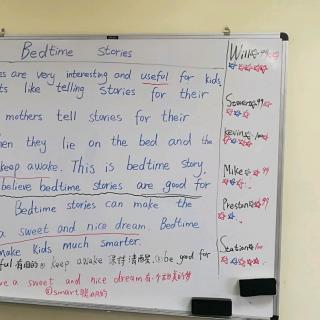 Bedtime stories
es are very interesting and useful for kids.
ts like telling stories for their
mothers tell stories for their
en they lie on the bed and the
keep awake. This is bedtime story.
believe bedtime stories are good for
Bedtime stories can make the
a sweet and nice dream. Bedtime
make kids much smarter.
ful 有用的 ② keep awake 保持清醒 ③ be good for
ve a sweet and nice dream 有个甜美的梦
⑤ smart 聪明的
Will 99
Steven 99
Kevin 100
Mike 99
Preston 99
Station